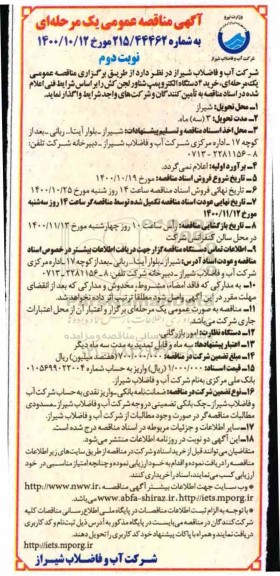 وزارت نیرو
شرکت آب و فاضلاب شیراز
آگهی مناقصه عمومی یک مرحله‌ای
به شماره ۲۱۵/۴۴۴۶۲ مورخ ۱۴۰۰/۱۰/۱۲
نوبت دوم
شرکت آب و فاضلاب شیراز در نظر دارد از طریق برگزاری مناقصه عمومی
یک مرحله‌ای، خرید ۲ دستگاه الکتروپمپ شناور لجن کش را بر اساس شرایط فنی اعلام
شده در اسناد مناقصه به تأمین کنندگان و شرکت‌های واجد شرایط واگذار نماید.
۱- محل تحویل: شیراز
۲- مدت تحویل: ۳ (سه) ماه.
۳- محل اخذ اسناد مناقصه و تسلیم پیشنهادات: شیراز-بلوار آیت‌ا... ربانی-بعد از
کوچه ۱۷-اداره مرکزی شرکت آب و فاضلاب شیراز-دبیرخانه شرکت تلفن:
۸-۳۲۲۸۱۱۵۶-۰۷۱۳
۴- برآورد اولیه: اعلام نمی‌گردد.
۵- تاریخ شروع فروش اسناد مناقصه: مورخ ۱۴۰۰/۱۰/۱۹
۶- تاریخ نهائی فروش اسناد مناقصه ساعت ۱۴ روز شنبه مورخ ۱۴۰۰/۱۰/۲۵
۷- تاریخ نهایی عودت اسناد مناقصه تکمیل شده توسط مناقصه‌گر ساعت ۱۴ روز سه‌شنبه
مورخ ۱۴۰۰/۱۱/۱۲
۸- تاریخ بازگشایی مناقصه: رأس ساعت ۱۰ روز چهارشنبه مورخ ۱۴۰۰/۱۱/۱۳
در محل سالن کنفرانس شرکت
۹- اطلاعات تماس دستگاه مناقصه گزار جهت دریافت اطلاعات بیشتر در خصوص اسناد
مناقصه و عودت اسناد آدرس: شیراز-بلوار آیت‌ا... ربانی-بعد از کوچه ۱۷-اداره مرکزی
شرکت آب و فاضلاب شیراز-دبیرخانه شرکت تلفن: ۸-۳۲۲۸۱۱۵۶-۰۷۱۳
۱۰- به مدارکی که فاقد امضاء، مشروط، مخدوش و مدارکی که بعد از انقضای
مهلت مقرر در این آگهی واصل شود مطلقا ترتیب اثر داده نخواهد شد.
۱۱- مناقصه به صورت عمومی یک مرحله‌ای برگزار و اعتبار آن از محل اعتبارات
جاری شرکت می‌باشد.
۱۲- دستگاه نظارت: امور بازرگانی
۱۳- اعتبار پیشنهادها: سه ماه و قابل تمدید به مدت سه ماه دیگر
۱۴- مبلغ تضمین شرکت در مناقصه: ۷۰۰/۰۰۰/۰۰۰ (هفتصد میلیون) ریال
۱۵- قیمت اسناد: ۱/۰۰۰/۰۰۰ (ریال) واریز به حساب شماره ۰۱۰۵۶۹۹۰۲۲۰۰۴
بانک ملی مرکزی به‌نام شرکت آب و فاضلاب شیراز.
۱۶- نوع تضمین شرکت در مناقصه: ضمانتنامه بانکی-واریز نقدی به حساب شرکت آب
و فاضلاب شیراز-چک بانکی تضمینی در وجه شرکت آب و فاضلاب شیراز-مسدودی
مطالبات مناقصه‌گر در صورت وجود مطالبات از شرکت آب و فاضلاب شیراز.
۱۷- سایر اطلاعات و جزئیات مربوطه در اسناد مناقصه درج شده است.
۱۸- این آگهی دو نوبت در روزنامه اطلاعات منتشر می‌شود.
متقاضیان می‌توانند قبل از خرید اسناد و شرکت در مناقصه از طریق سایت‌های زیر اطلاعات
مناقصه را دریافت نموده و اقدام به خرید و ارزیابی نموده و چنانچه امتیاز مناسبی در خود
ارزیابی کسب می‌نمایند، اسناد را خریداری کنند
http://www.nww.ir، وب سایت جهت اطلاعات بیشتر آگهی مناقصه
http://iets.mporg.ir، www.abfa-shiraz.ir می‌باشد.
* با توجه به الزام ثبت اطلاعات مناقصات در پایگاه ملی اطلاع رسانی مناقصات کلیه
شرکت کنندگان در مناقصه می‌بایست در پایگاه مذکور به آدرس ذیل ثبت‌نام و کد کاربری
دریافت نمایند و همراه با پاکات پیشنهاد خود کد کاربری را تحویل دهند.
http://iets.mporg.ir
شرکت آب و فاضلاب شیراز